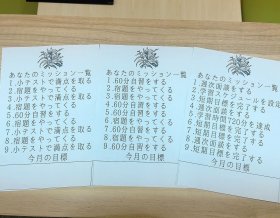 あなたのミッション一覧
1.小テストで満点を取る
2.宿題をやってくる
3.小テストで満点を取る
4.宿題をやってくる
5.60分自習をする
6.宿題をやってくる
7.小テストで満点を取る
8.宿題をやってくる
9.小テストで満点を取る
今月の目標
あなたのミッション一覧
1.60分自習をする
2.宿題をやってくる
3.宿題をやってくる
4.60分自習をする
5.60分自習をする
6.宿題をやってくる
7.宿題をやってくる
8.60分自習をする
9.60分自習をする
今月の目標
あなたのミッション一覧
1.週次面談をする
2.学習スケジュールを設定
3.短期目標を完了する
4.短期目標を完了する
5.学習時間720分を達成
6.短期目標を完了する
7.短期目標を完了する
8.週次面談をする
9.短期目標を完了する
今月の目標